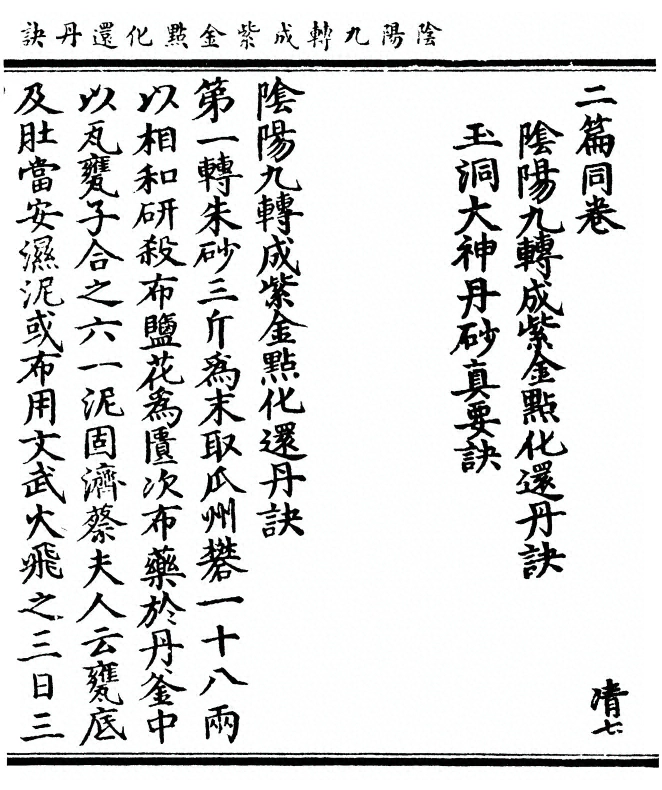 陰陽九轉成紫金點化還丹訣
二篇同卷 凊七
陰陽九轉成紫金點化還丹訣
玉洞大神丹砂真要訣
陰陽九轉成紫金點化還丹訣
第一轉朱砂三斤爲末取瓜州礬一十八兩
以相和研殺布鹽花爲匱次布藥於丹釜中
以瓦甕子合之六一泥固濟蔡夫人云甕底
及肚當安濕泥或布用文武火飛之三日三